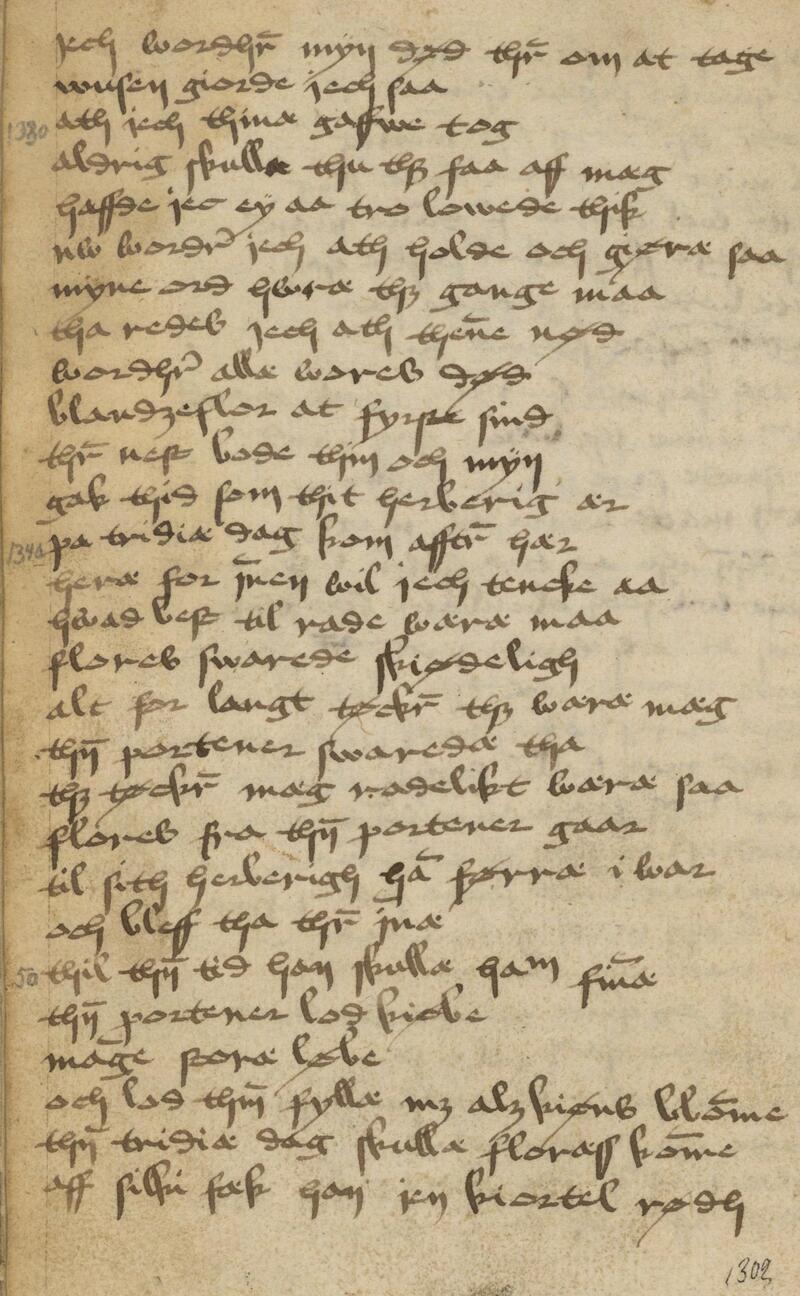 jech wordhr̄ myn død thr̄ om at tage
wusen giorde jech saa
1330 ath jech thinæ gaffwe tog
aldrig skullæ thu thꝫ faa aff mæg
haffde jec ey aa tro lowede thik
nw wordr̄ jech ath holde och giøræ saa
myne ord hwræ thꝫ gange maa
tha redes jech ath then̄e nød
wordhr̄ allæ wores død
blandzeflor at fyrste sind
thr̄ nest bode thin och myn
gak thid som thit herberig ær
1340 pa tridiæ dag kom afftr̄ hær
heræ for jn̄en wil jech tencke aa
hwad best til rade wæræ maa
flores swarede skiødeligh
alt for langt tøckr̄ thꝫ wæræ mæg
thn̄ portener swaredæ tha
thꝫ tøckr̄ mæg radelikt wæræ saa
flores fra thn̄ portener gaar
til sith herberigh hā førræ i war
och bleff tha thr̄ jnæ
50 thil thn̄ tid han skullæ ham fin̄æ
thn̄ portener lod kiøbe
māge storæ løbe
och lod thm̄ fyllæ mꝫ alꝫkiøns blom̄e
thn̄ tridiæ dag skullæ floræss kom̄e
aff silki fæk han jen kiortel rødh
1302